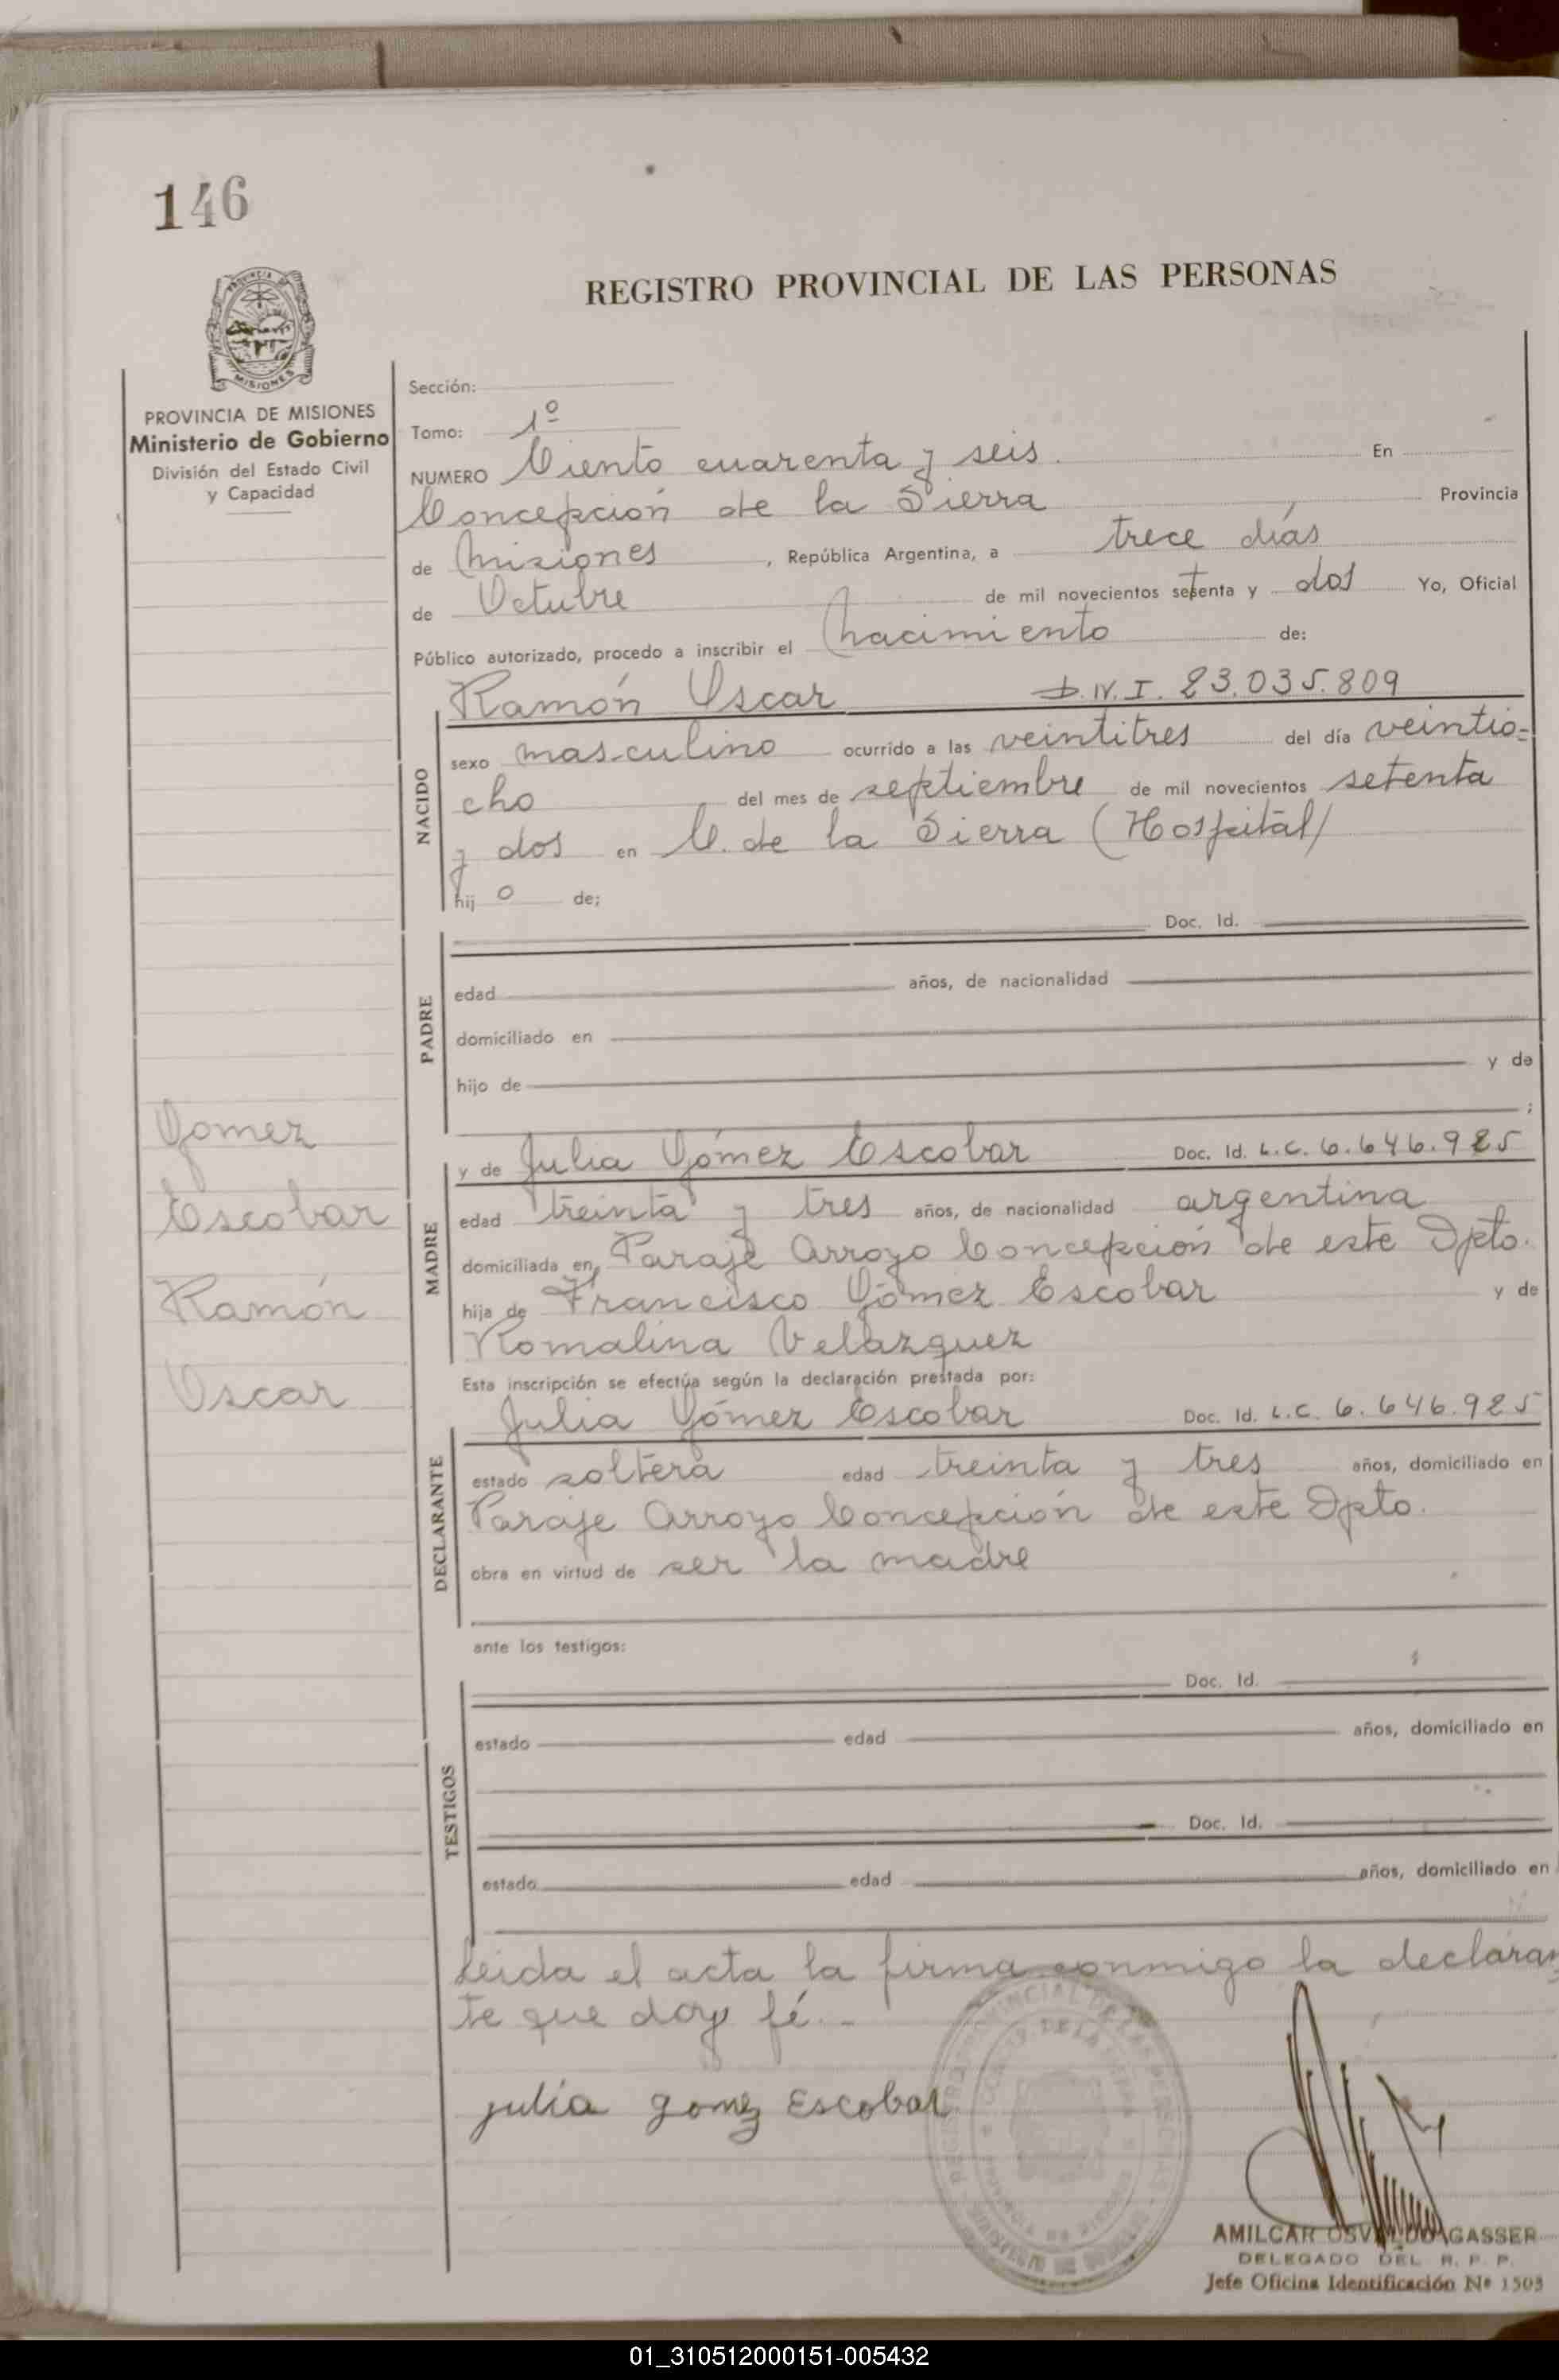 146
REGISTRO PROVINCIAL DE LAS PERSONAS
PROVINCIA DE MISIONES
Ministerio de Gobierno
División del Estado Civil
y Capacidad
Sección:
Tomo: 1º
NUMERO Ciento cuarenta y seis. En
Concepción de la Sierra Provincia
de Misiones, República Argentina, a trece días
de Octubre de mil novecientos setenta y dos Yo, Oficial
Público autorizado, procedo a inscribir el Nacimiento de:
Ramón Oscar D.N.I. 23.035.809
NACIDO
sexo masculino ocurrido a las veintitres del día veintio=
cho del mes de septiembre de mil novecientos setenta
y dos en C. de la Sierra (Hospital/
hijo de;
PADRE
Doc. Id.
edad años, de nacionalidad
domiciliado en
hijo de y de
;
Gomez
Escobar
Ramón
Oscar
MADRE
y de Julia Gómez Escobar Doc. Id. L.C. 6.646.925
edad treinta y tres años, de nacionalidad argentina
domiciliada en Paraje Arroyo Concepción de este Dpto.
hija de Francisco Gómez Escobar y de
Romalina Velazquez
Esta inscripción se efectúa según la declaración prestada por:
DECLARANTE
Julia Gómez Escobar Doc. Id. L.C. 6.646.925
estado soltera edad treinta y tres años, domiciliado en
Paraje Arroyo Concepción de este Dpto.
obra en virtud de ser la madre
ante los testigos:
TESTIGOS
Doc. Id.
estado edad años, domiciliado en
Doc. Id.
estado edad años, domiciliado en
Leida el acta la firma conmigo la declaran
te que doy fé.-
julia gomez Escobar
AMILCAR OSVALDO GASSER
DELEGADO DEL R. P. P.
Jefe Oficina Identificación Nº 1503
01_310512000151-005432